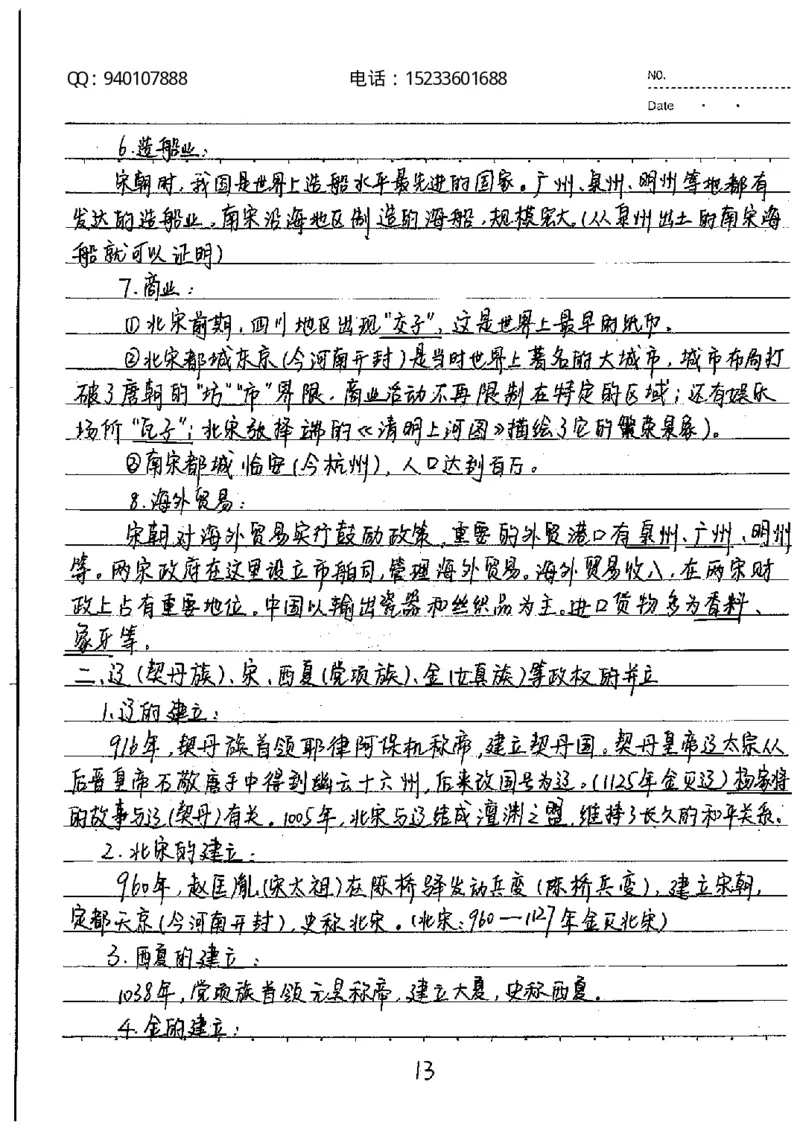 QQ：940107888 电话：15233601688 NO.
Date
6.造船业：
宋朝时，我国是世界上造船水平最先进的国家。广州、泉州、明州等地都有
发达的造船业。南宋沿海地区制造的海船，规模宏大。（从泉州出土的南宋海
船就可以证明）
7.商业：
①北宋前期，四川地区出现"交子"，这是世界上最早的纸币。
②北宋都城东京（今河南开封）是当时世界上著名的大城市，城市布局打
破了唐朝的"坊""市"界限，商业活动不再限制在特定的区域；还有娱乐
场所"瓦子"；北宋张择端的《清明上河图》描绘了它的繁荣景象）。
③南宋都城临安（今杭州），人口达到百万。
8.海外贸易：
宋朝对海外贸易实行鼓励政策，重要的外贸港口有泉州、广州、明州
等。两宋政府在这里设立市舶司，管理海外贸易。海外贸易收入，在两宋财
政上占有重要地位。中国以输出瓷器和丝织品为主。进口货物多为香料、
象牙等。
二、辽（契丹族）、宋、西夏（党项族）、金（女真族）等政权的并立
1.辽的建立：
916年，契丹族首领耶律阿保机称帝，建立契丹国。契丹皇帝辽太宗从
后晋皇帝石敬唐手中得到幽云十六州，后来改国号为辽。（1125年金灭辽）杨家将
的故事与辽（契丹）有关。1005年，北宋与辽结成澶渊之盟，维持了长久的和平关系。
2.北宋的建立：
960年，赵匡胤（宋太祖）在陈桥驿发动兵变（陈桥兵变），建立宋朝，
定都东京（今河南开封），史称北宋。（北宋：960—1127年金灭北宋）
3.西夏的建立：
1038年，党项族首领元昊称帝，建立大夏，史称西夏。
4.金的建立：
13